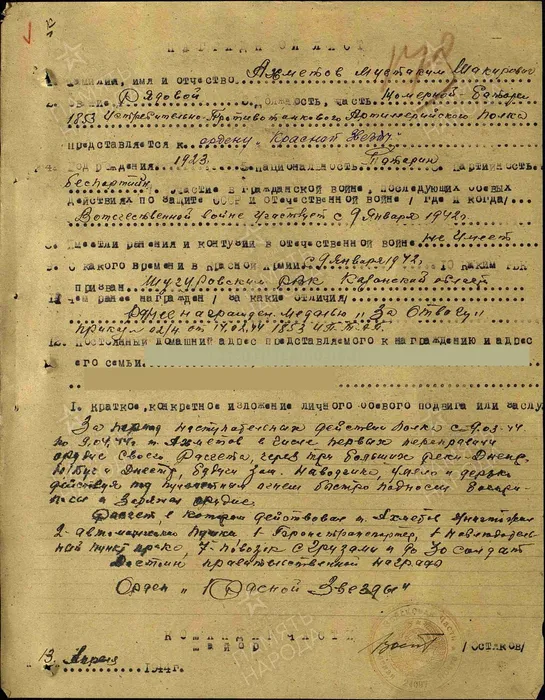 НАГРАДНОЙ ЛИСТ
1. Фамилия, имя и отчество Ахметов Мустаким Шакирович
2. Звание Рядовой 3. Должность, часть Номерной Батареи
1853 Истребительно-Противотанкового Артиллерийского Полка
представляется к ордену "Красной Звезды"
4. Год рождения 1923 5. национальность Татарин 6. партийность
беспартийн. участие в гражданской войне, последующих боевых
действиях по защите СССР и отечественной войне /где и когда/
В отечественной войне участвует с 9 Января 1942 г.
8. Имеет ли ранения и контузии в отечественной войне не имеет
9. С какого времени в Красной Армии с 9 Января 1942 г. 10 каким РВК
призван Шугуровским РВК Казанской области
11. Чем ранее награжден /за какие отличия/
Ранее награжден медалью "За Отвагу"
приказ 02/н от 14.02.44 1853 ИПТАП
12. Постоянный домашний адрес представляемого к награждению и адрес
его семьи
1. Краткое, конкретное изложение личного боевого подвига или заслуг
За период наступательных действий полка с 9.03.44
по 9.04.44 т. Ахметов в числе первых переправил
орудие своего расчета, через три большие реки Днепр,
Ю/Буг и Днестр, будучи зам. наводчика, умело и дерзко
действуя под пулеметным огнем быстро подносил боепри-
пасы и заряжал орудие.
Расчет, в котором действовал т. Ахметов уничтожил
2-автоматических пушки 1 бронетранспортер, 1 наблюдатель-
ный пункт пр-ка, 7 повозок с грузами и до 30 солдат
Достоин правительственной награды
Орден "Красной Звезды"
Командир части
майор /Остяков/
13 Апреля 1944 г.
ПАМЯТЬ
НАРОДА